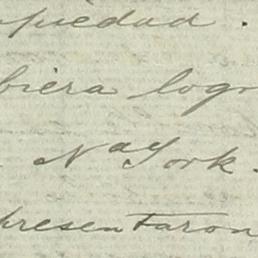 opiedad.
biera logr
Na York.
presentaron